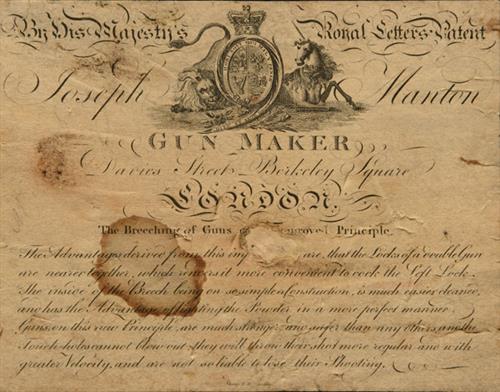 By His Majesty's Royal Letters Patent
Joseph Manton
GUN MAKER
Davies Street Berkeley Square
LONDON.
The Breeching of Guns Principle.
The Advantages derived from this are, that the Locks of a double Gun
are nearer together, which renders it more convenient to cock the Left Lock.
The inside of the Breech being on so simple construction, is much easier cleaned,
and has the Advantage of igniting the Powder in a more perfect manner.
Guns, on this new Principle, are much stronger and safer than any others, and the
Touch-holes cannot blow out, they will throw their shot more regular and with
greater Velocity, and are not so liable to lose their Shooting.